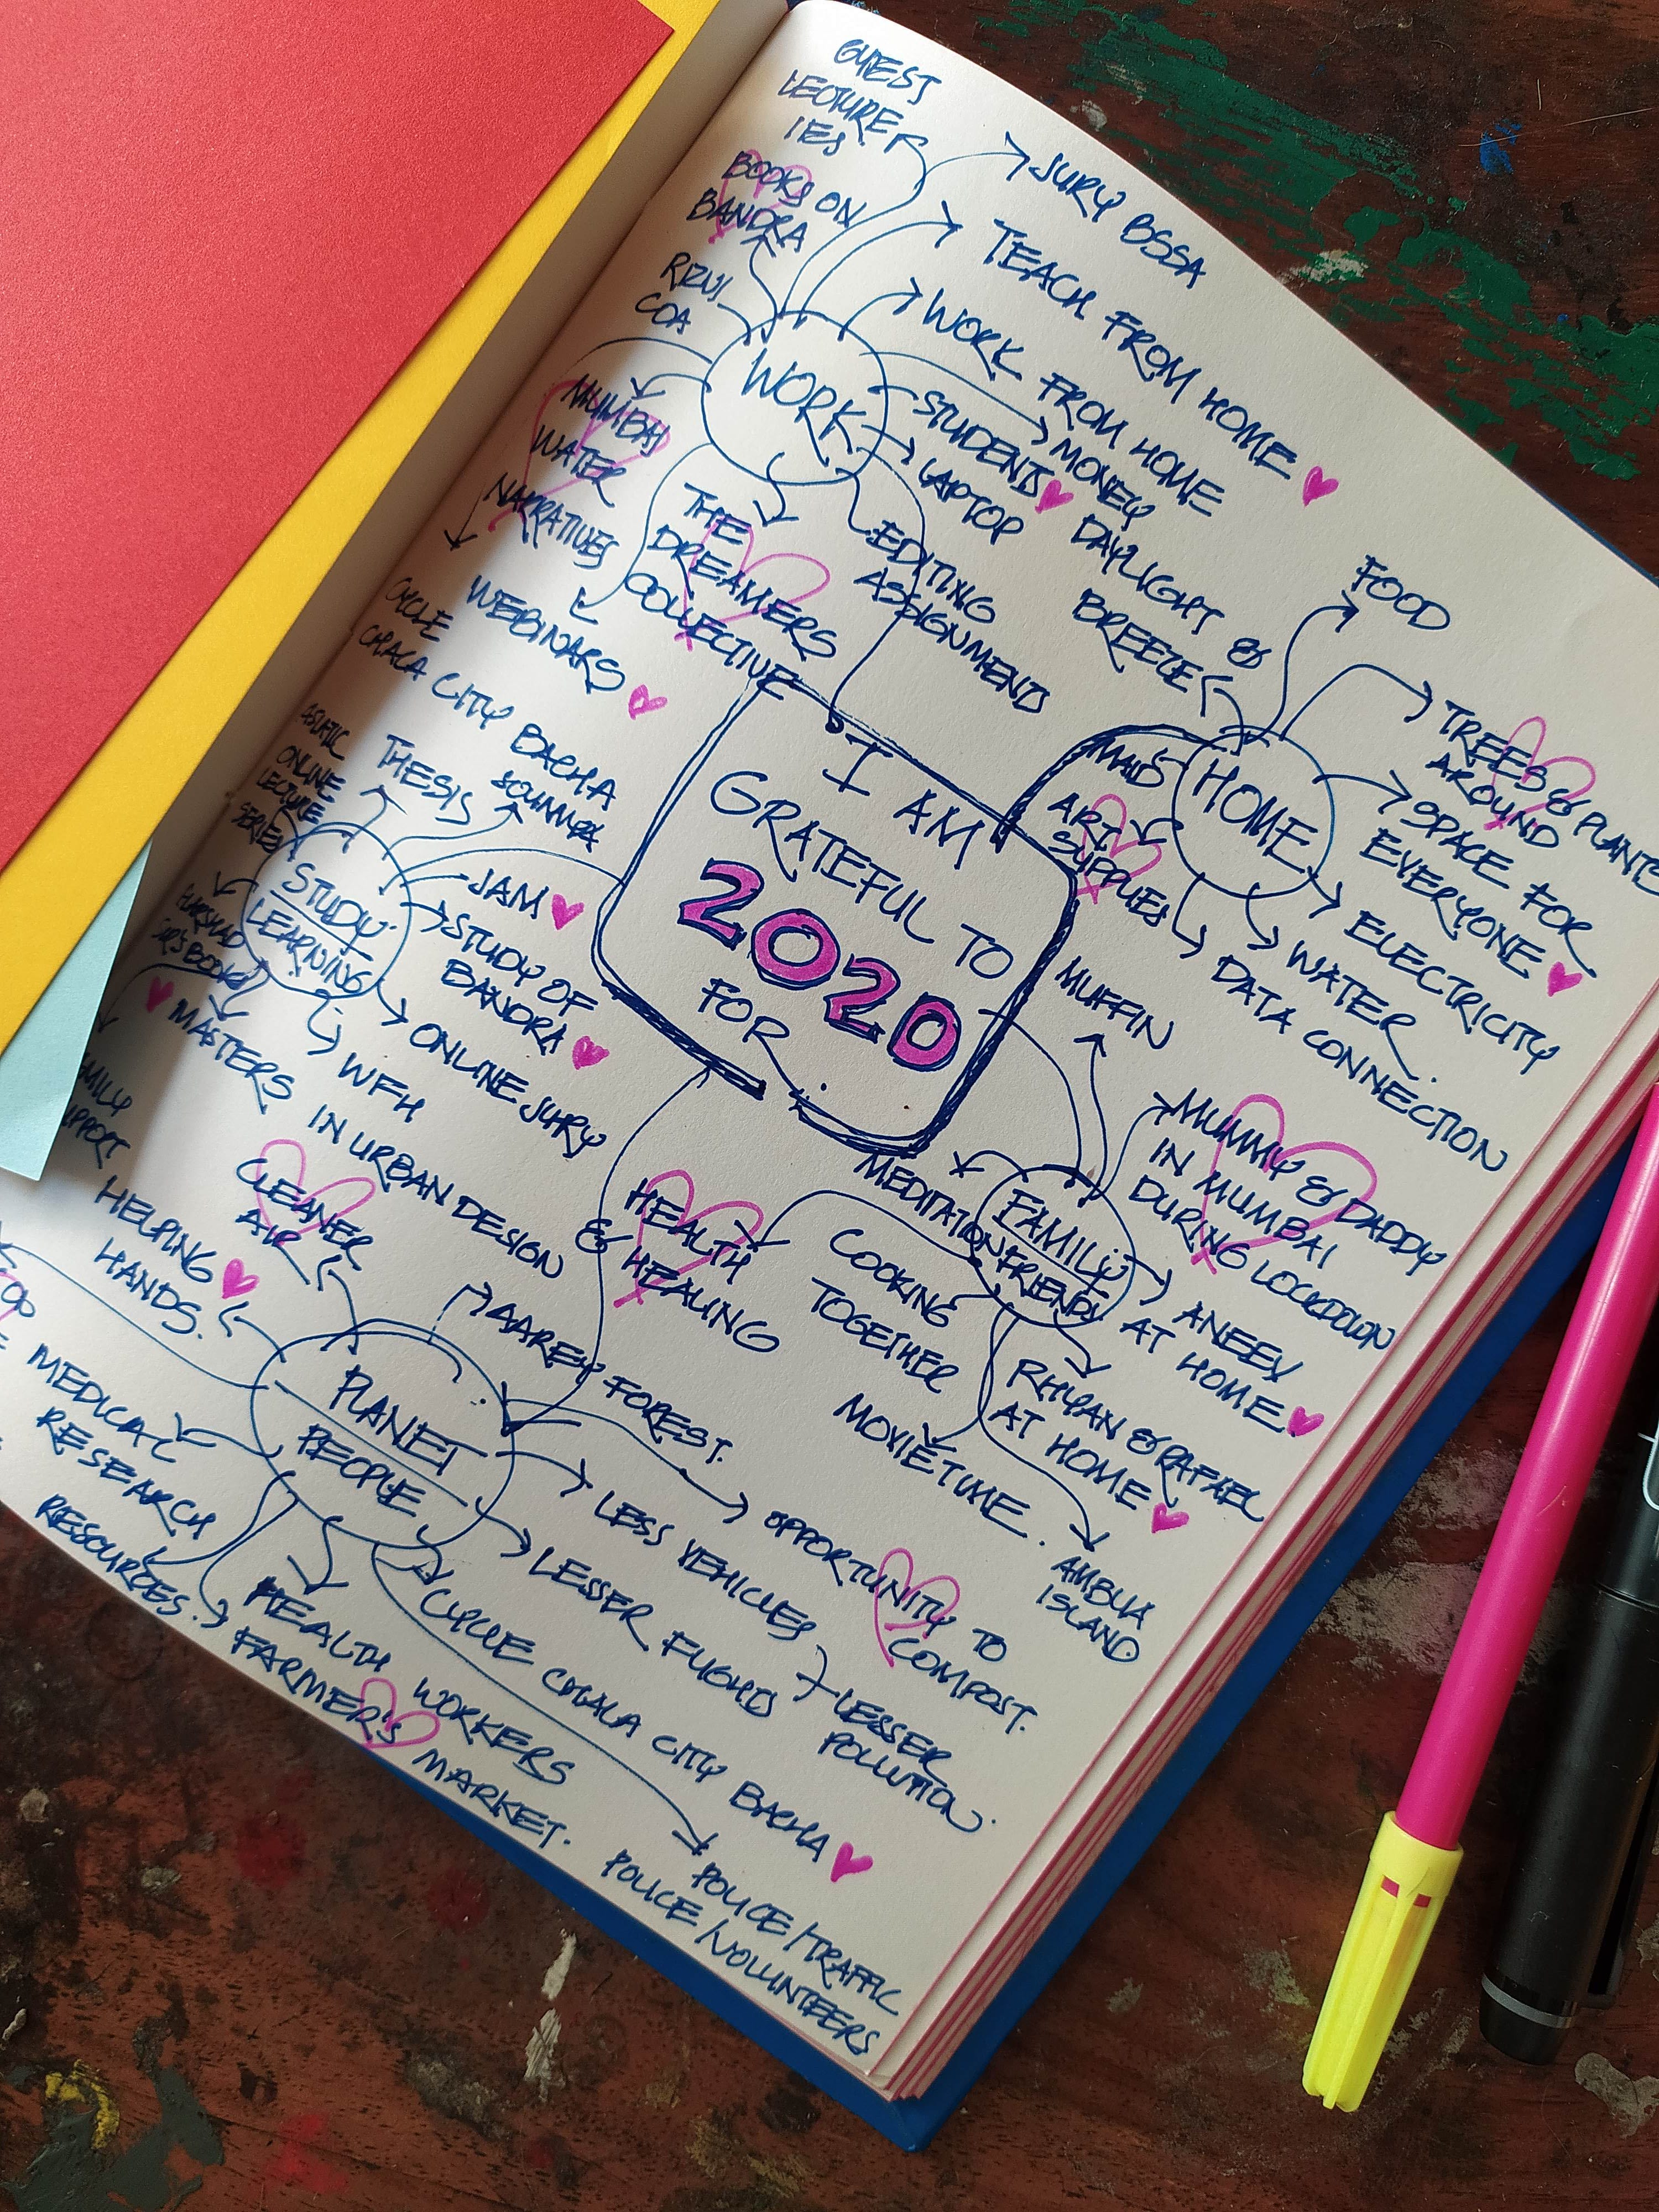 GUEST
LECTURE
IES
JURY BSSA
BOOKS ON
BANDRA
TEACH FROM HOME
RIZVI
COA
WORK FROM HOME
WORK
STUDENTS
MONEY
LAPTOP
MUMBAI
WATER
NARRATIVES
THE
DREAMERS
COLLECTIVE
EDITING
ASSIGNMEND
WEBINARS
CYCLE
CHALA CITY BACHA
I AM
GRATEFUL TO
2020
FOR
HOME
DAYLIGHT &
BREEZE
FOOD
TREES & PLANTS
AROUND
SPACE FOR
EVERYONE
ELECTRICITY
WATER
DATA CONNECTION
ART
SUPPLIES
MAID'S
STUDY
LEARNING
ASIATIC
ONLINE
LECTURE
SERIES
THESIS
SOUMYA
JAM
STUDY OF
BANDRA
ONLINE JURY
WFH
MASTERS
IN URBAN DESIGN
SIR'S BOOKS
FAMILY
FRIENDS
MUFFIN
MUMMY & DADDY
IN MUMBAI
DURING LOCKDOWN
ANEEX
AT HOME.
RHYAN & RAFAEL
AT HOME
AMBUA
ISLAND
MOVIE TIME.
COOKING
TOGETHER
MEDITATION
HEALTH
& HEALING
PLANET
PEOPLE
CLEANER
AIR
AAREY FOREST.
OPPORTUNITY TO
COMPOST.
LESS VEHICLES
LESSER FLIGHTS
LESSER
POLLUTION.
CYCLE CHALA CITY BACHA
POLICE/TRAFFIC
POLICE/VOLUNTEERS
HEALTH WORKERS
FARMER'S MARKET.
RESOURCES.
MEDICAL
RESEARCH
HELPING
HANDS.